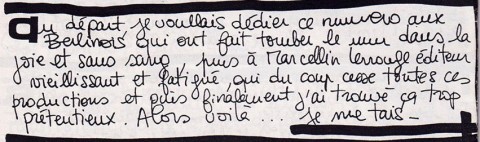 Au départ, je voullais dédier ce numéro aux
Berlinois qui ont fait tomber le mur dans la
joie et sans sang, puis à Marcellin lerouge éditeur
vieillissant et fatigué, qui du coup cesse toutes ces
productions et puis finalement j'ai trouvé ça trop
prétentieux. Alors voilà... je me tais_